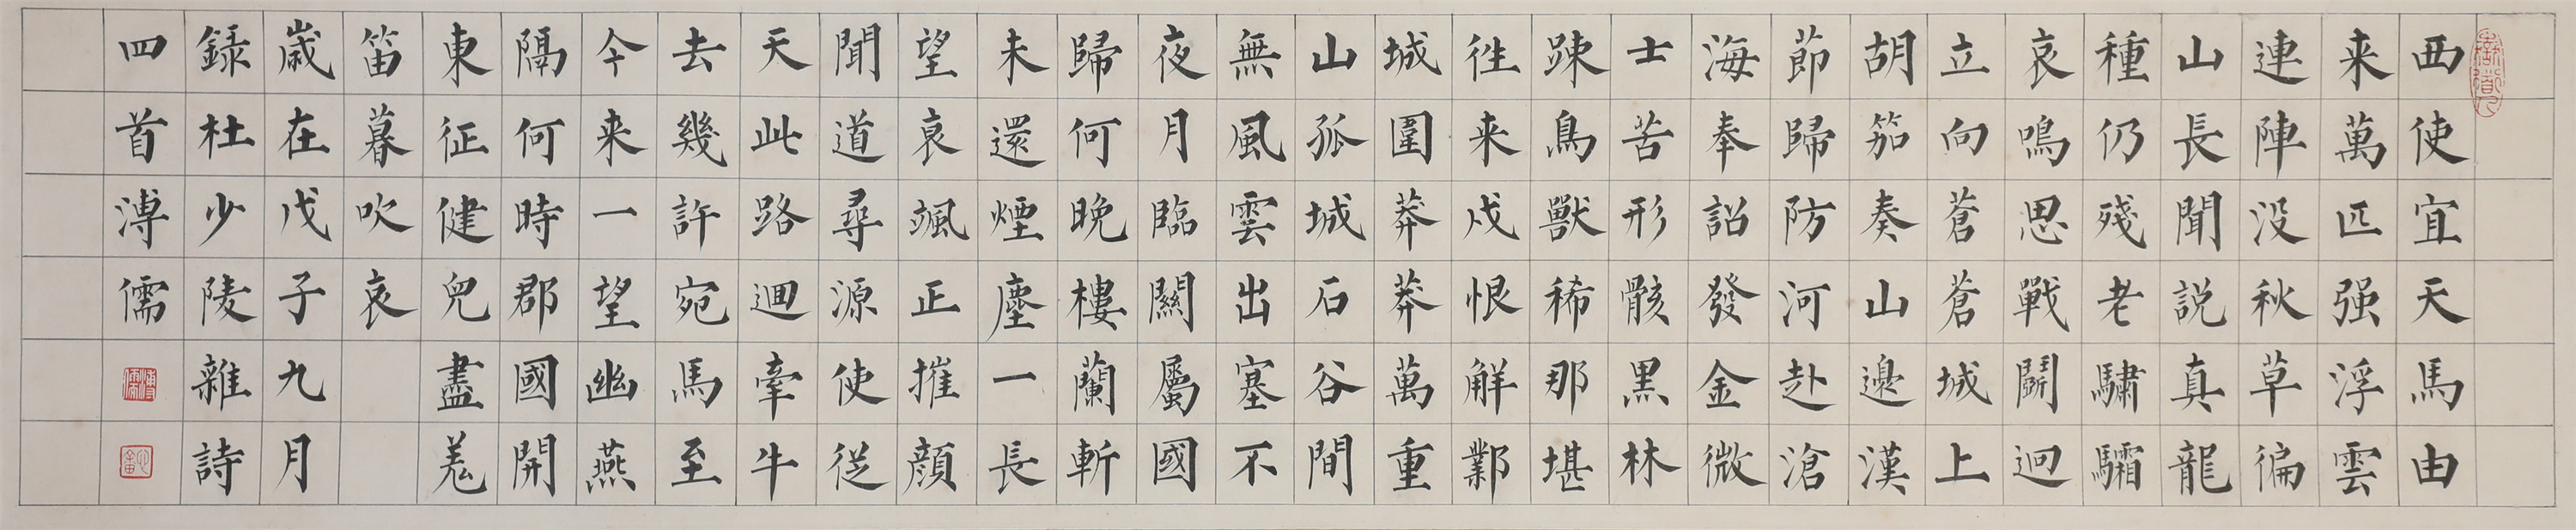 西使宜天馬由
来萬匹强浮雲
連陣没秋草徧
山長聞説真龍
種仍殘老驌驦
哀鳴思戰鬭迴
立向蒼蒼城上
胡笳奏山邊漢
節歸防河赴滄
海奉詔發金微
士苦形骸黑林
踈鳥獸稀那堪
徃来戍恨解鄴
城圍莽莽萬重
山孤城石谷間
無風雲出塞不
夜月臨關屬國
歸何晚樓蘭斬
未還煙塵一長
望衰颯正摧顔
聞道尋源使從
天此路迴牽牛
去幾許宛馬至
今来一望幽燕
隔何時郡國開
東征健兒盡羌
笛暮吹哀
歲在戊子九月
録杜少陵雜詩
四首溥儒
溥儒
心畬